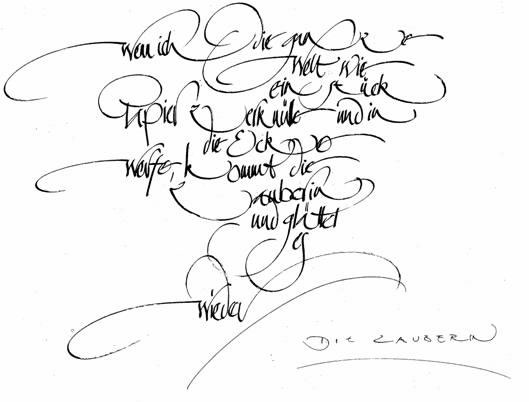 wenn ich die ganze
Welt wie
ein Stück
Papier zerknülle und in
die Ecke
werfe, kommt die
Zauberin
und glättet
es
wieder
DIE ZAUBERIN